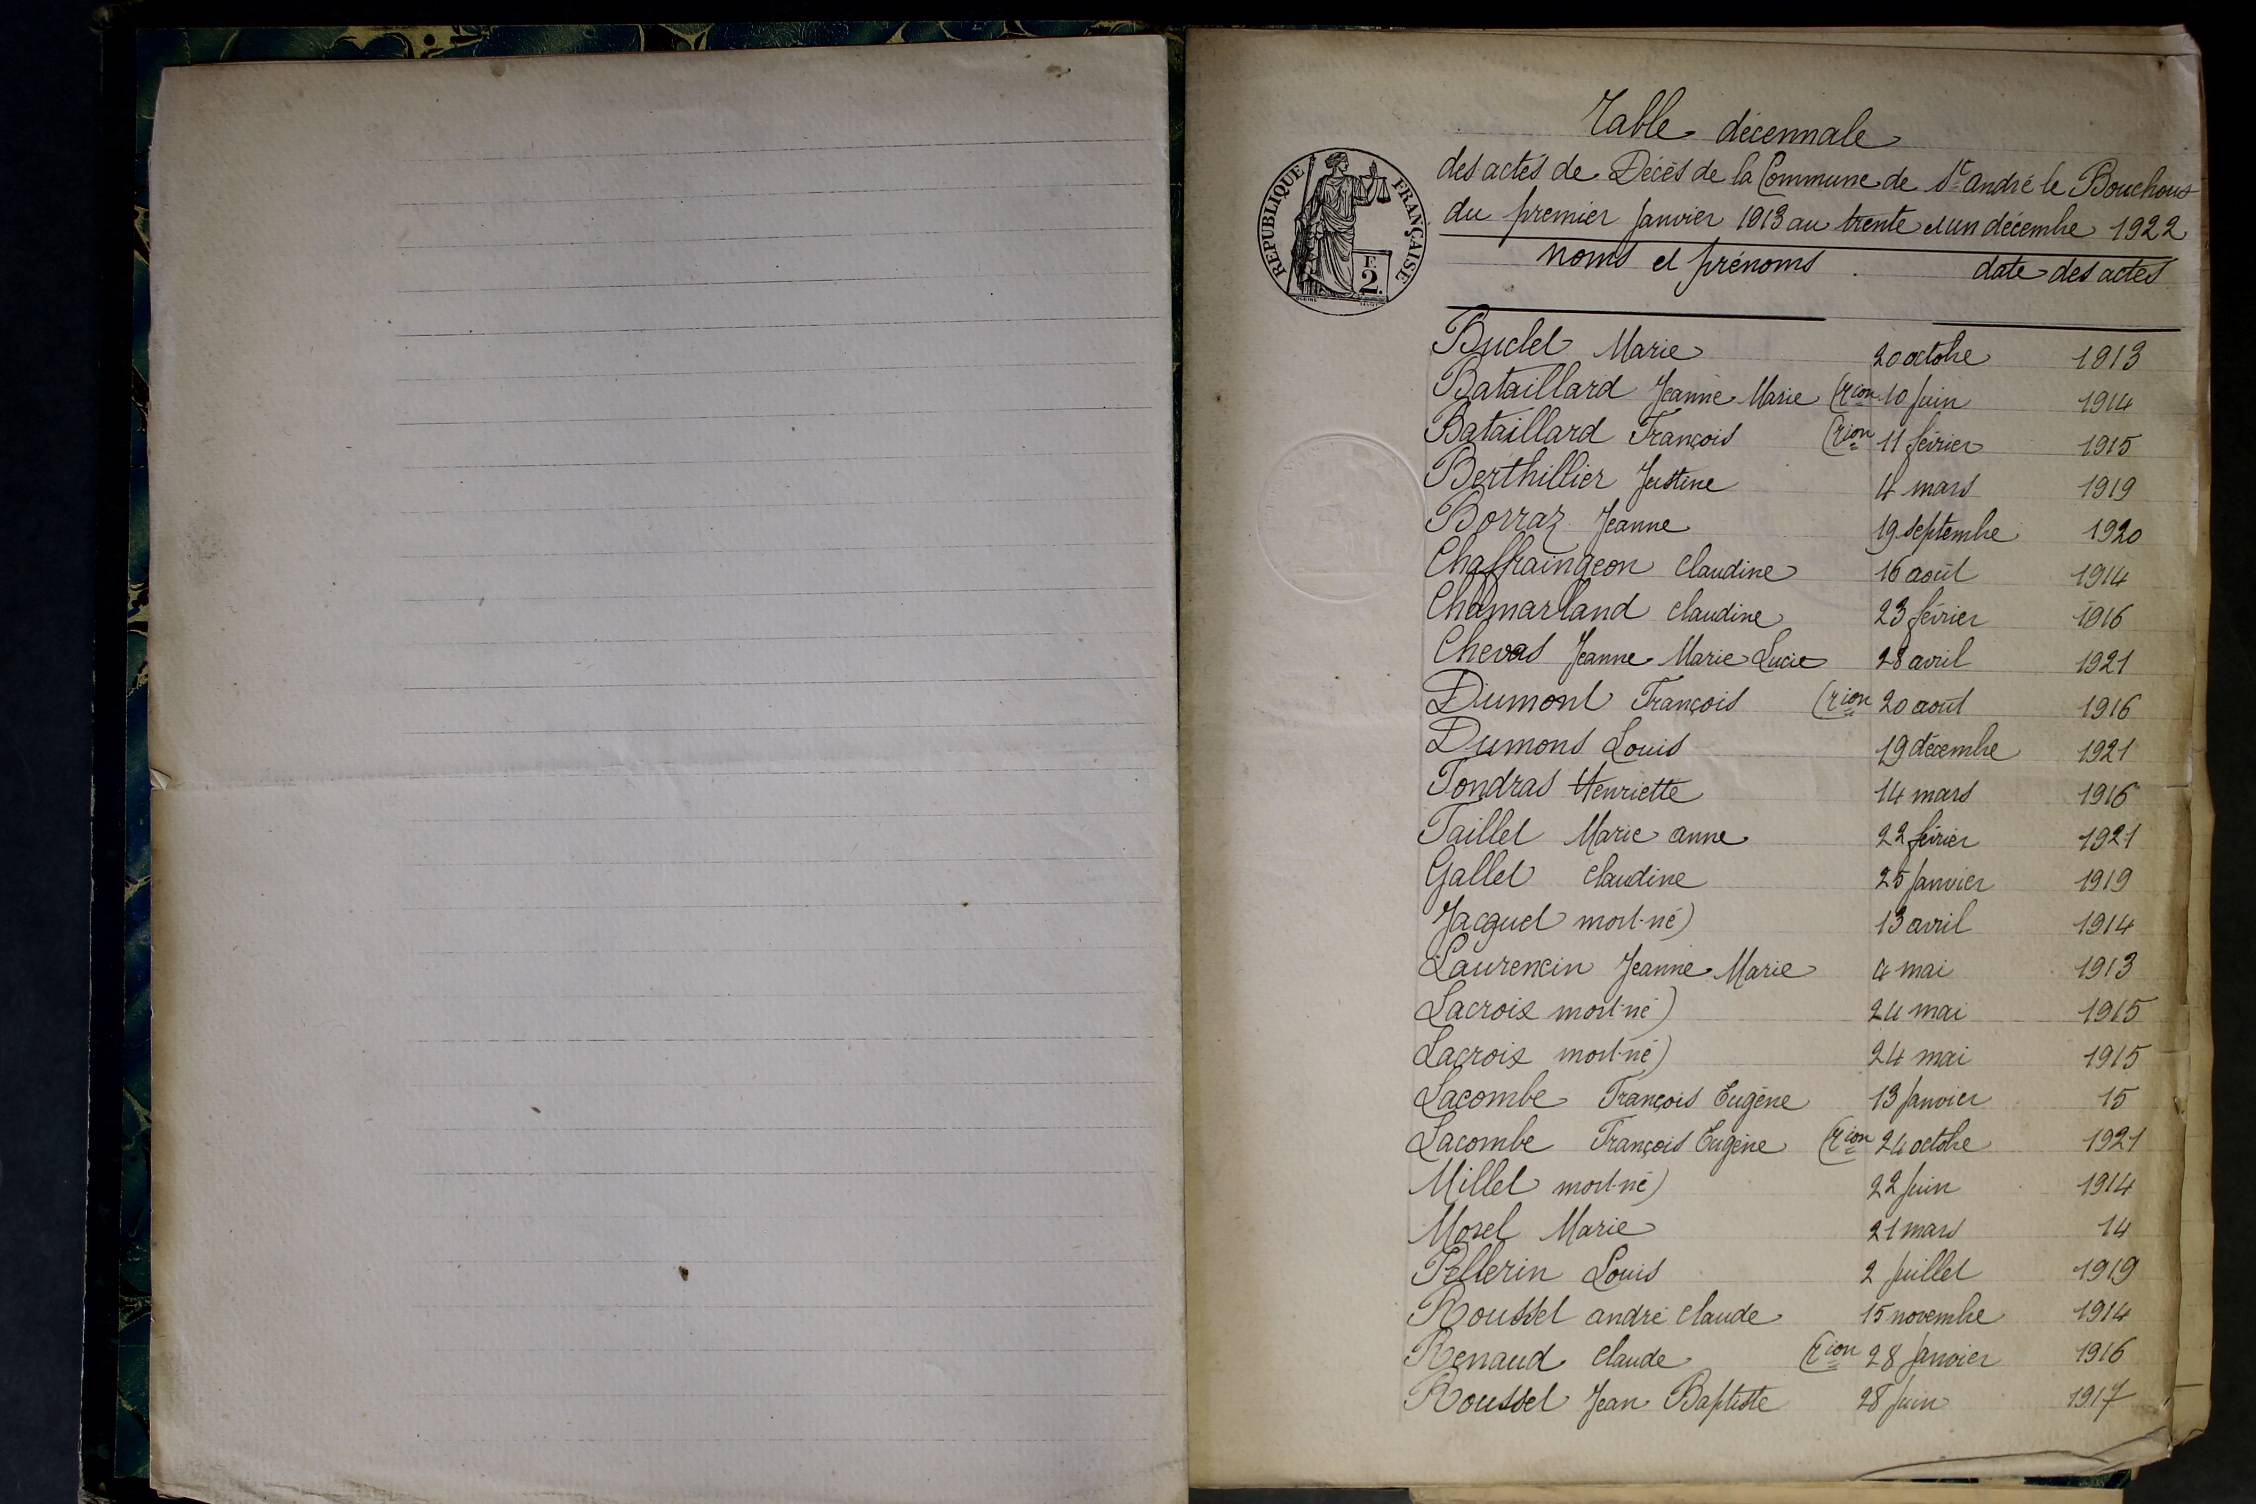 Table décennale
des actes de Décès de la Commune de St André le Bouchoux
du premier janvier 1913 au trente et un décembre 1922
RÉPUBLIQUE FRANÇAISE
F.
2.
noms et prénoms date des actes
Buclet Marie 20 octobre 1913
Bataillard Jeanne Marie (rion 10 juin 1914
Bataillard François (rion 11 février 1915
Berthillier Justine 4 mars 1919
Borraz Jeanne 19 septembre 1920
Chaffraingeon Claudine 16 août 1914
Chamarland Claudine 23 février 1916
Chevas Jeanne Marie Lucie 28 avril 1921
Dumont François (rion 20 août 1916
Dumons Louis 19 décembre 1921
Fondras Henriette 14 mars 1916
Faillet Marie anne 22 février 1921
Gallet Claudine 25 janvier 1919
Jacquet mort-né) 13 avril 1914
Laurencin Jeanne Marie 4 mai 1913
Lacroix mort-né) 24 mai 1915
Lacroix mort-né) 24 mai 1915
Lacombe François Eugène 13 janvier 15
Lacombe François Eugène (rion 24 octobre 1921
Millet mort-né) 22 juin 1914
Morel Marie 21 mars 14
Pellerin Louis 2 juillet 1919
Roussel andré claude 15 novembre 1914
Renaud claude (rion 28 janvier 1916
Roussel Jean Baptiste 28 juin 1917